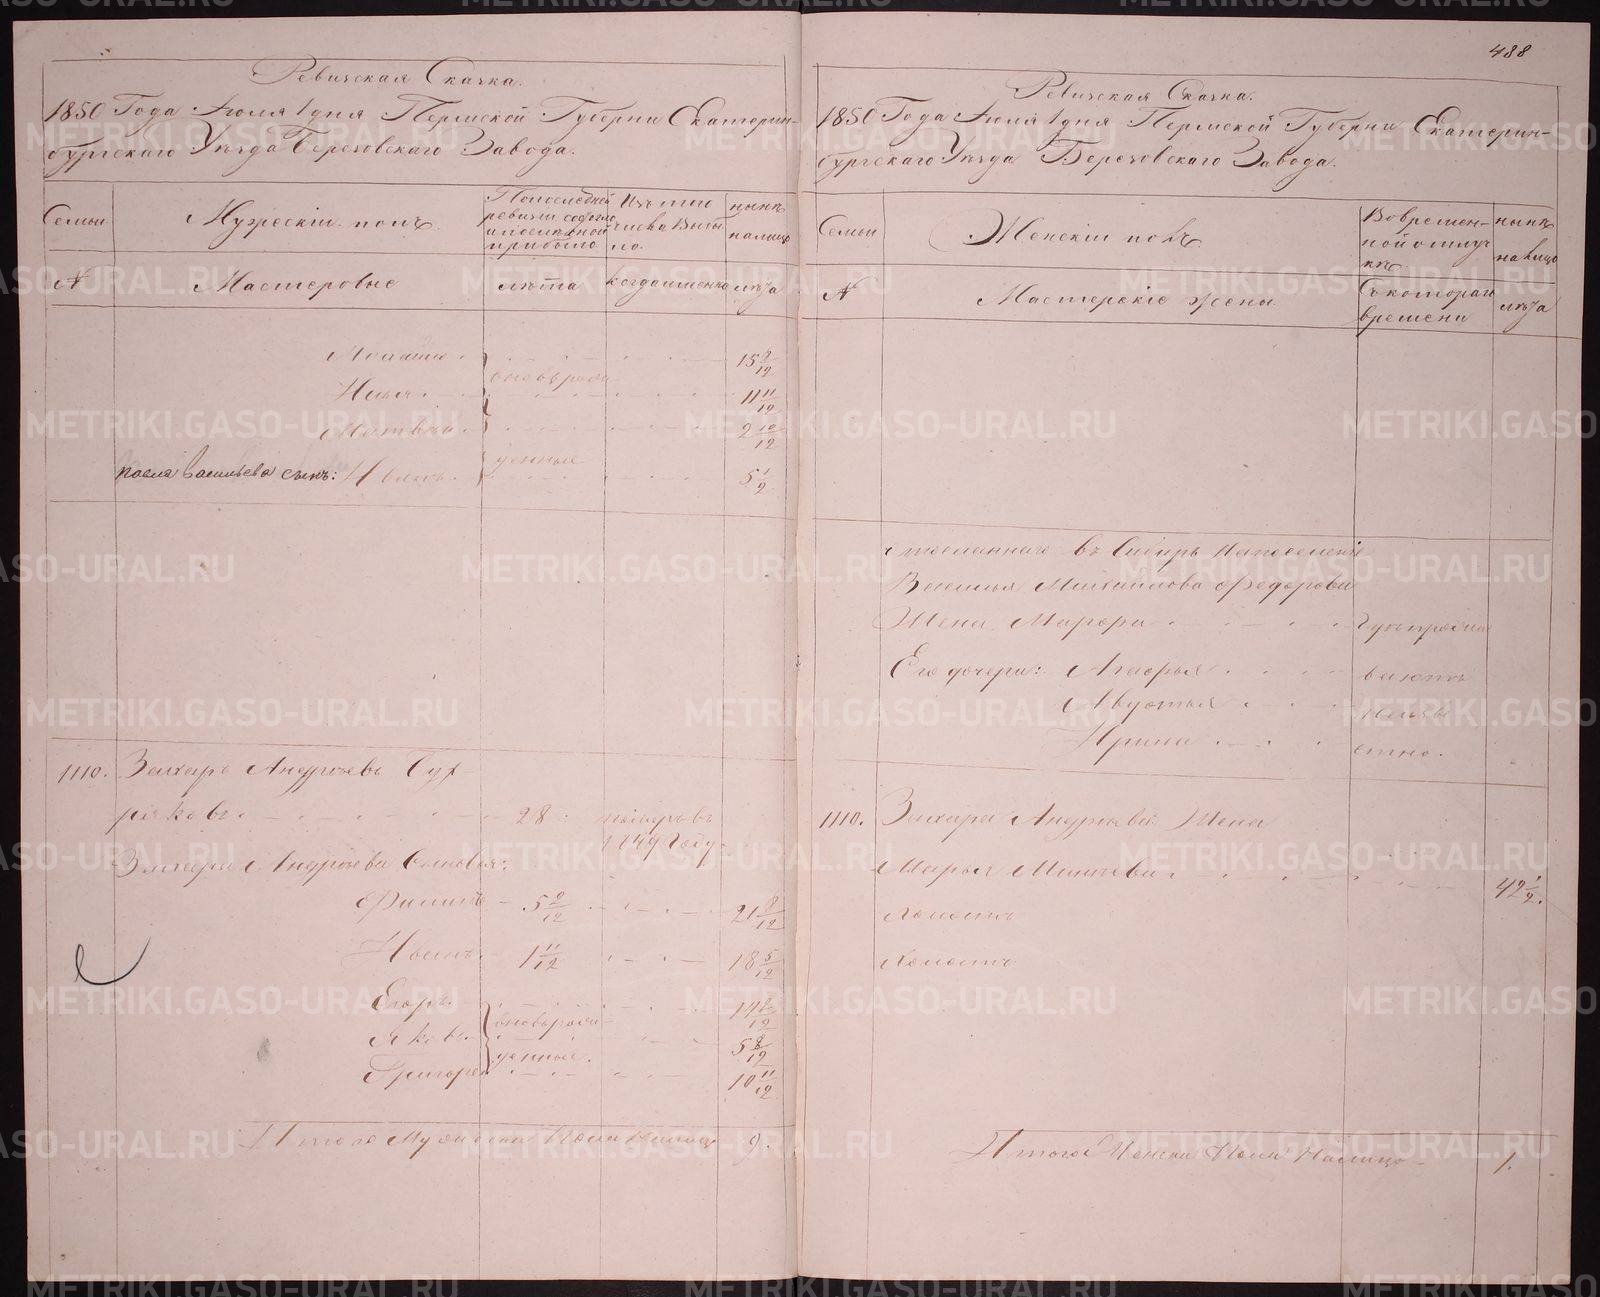 488
Ревизская Сказка.
1850 Года Июля 1 дня Пермской Губерни Екатерин-
бургскаго Уезда Березовскаго Завода.
Семьи
Мужескiй полъ.
По последней ревизiи состояло и после оной прибыло
Изъ того числа выбыло.
ныне налицо
№
Мастеровые
лета
когда именно
лета
15 9/12
вноврож-
Илья 11 11/12
Матвей 2 10/12
денные
Васильева сынъ: Иванъ. 5 1/2
1110. Захаръ Андреевъ
ряковъ. 28.
1849 Году.
Захара Андреева Сыновья:
Филипъ 5 2/12 21 8/12
Иванъ 1 11/12 18 5/12
Егоръ
вноврож-
Яковъ. 5 8/12
денные.
Григорей 10 11/12
Итого Мужеска Пола Налицо 9.
Ревизская Сказка.
1850 Года Июля 1 дня Пермской Губерни Екатерин-
бургскаго Уезда Березовскаго Завода.
Семьи
Женскiй полъ
Во времен-
ной отлуч-
ке
ныне
налицо
№
Мастерскiе жены
Съ котораго
времени
лета
сосланнаго въ Сибирь На поселенiе
Василья Михайлова Федорова
Жена Марфа
Его дочери: Агафья
Августья
Ирина
1110. Захара Андреева Жена
Марья 42 1/2.
Холостъ
Холостъ
Итого Женска Пола Налицо 1.
METRIKI.GASO-URAL.RU